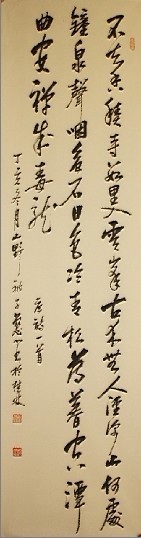 不知香積寺數里入雲峯古木無人徑深山何處
鐘泉聲咽危石日色冷青松薄暮空潭
曲安禪制毒龍
唐詩一首
丁亥冬月